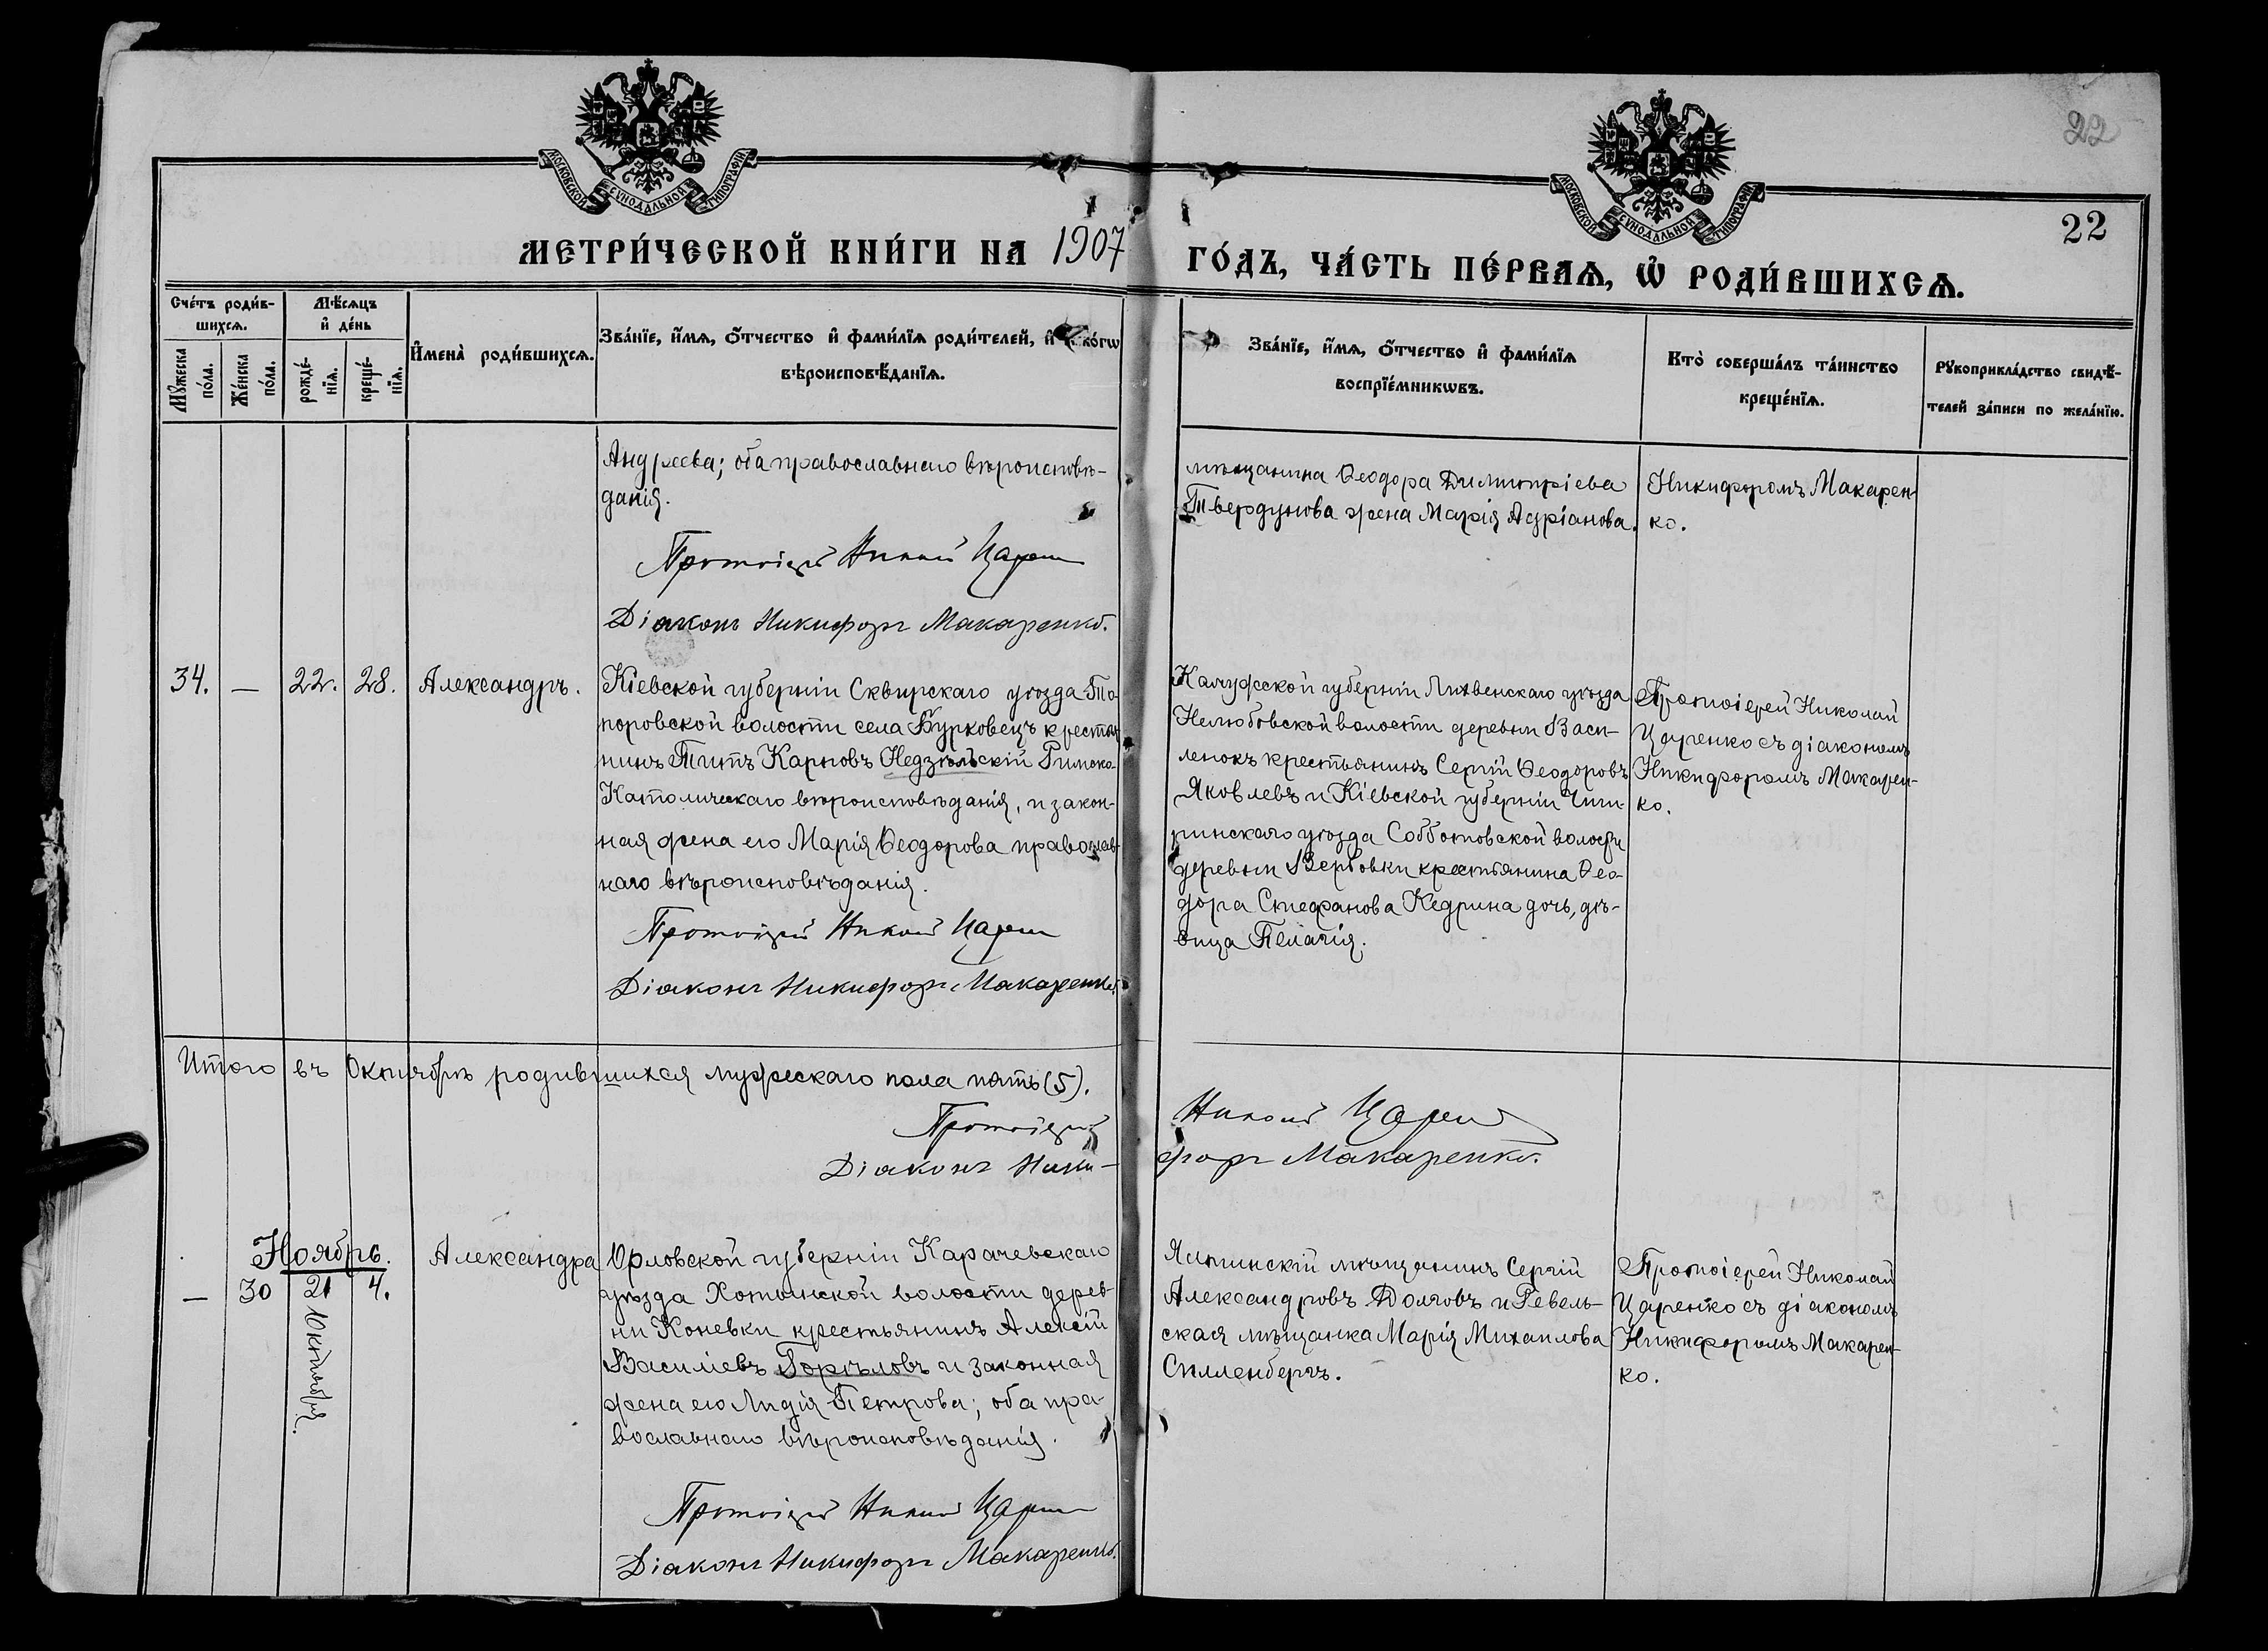 МОСКОВСКОЙ СѴНОДАЛЬНОЙ ТИПОГРАФІИ
МОСКОВСКОЙ СѴНОДАЛЬНОЙ ТИПОГРАФІИ
22
22
МЕТРИ́ЧЕСКОЙ КНИ́ГИ НА 1907 ГО́ДЪ, ЧА́СТЬ ПЕ́РВАѦ, Ѡ҆ РОДИ́ВШИХСѦ.
Сче́тъ роди́в-
шихсѧ.
Мꙋ́жеска
по́ла.
Же́нска
по́ла.
Мѣ́сѧцъ
и҆ де́нь
рожде́-
нїѧ.
креще́-
нїѧ.
И҆мена̀ роди́вшихсѧ.
Зва́нїе, и҆́мѧ, ѻ҆́тчество и҆ фами́лїѧ роди́телей, и҆ ко́гѡ
вѣроисповѣ́данїѧ.
Зва́нїе, и҆́мѧ, ѻ҆́тчество и҆ фами́лїѧ
воспрїе́мникѡвъ.
Кто̀ соверша́лъ та́инство
креще́нїѧ.
Рꙋкоприкла́дство свидѣ́-
телей за́писи по жела́нїю.
Андреева; оба православнаго вѣроисповѣ-
данія.
Протоіерей Николай Царенко
Діаконъ Никифоръ Макаренко.
мѣщанина Ѳеодора Димитріева
Твердунова жена Марія Адріанова.
Никифоромъ Макарен-
ко.
34. — 22. 28. Александръ.
Кіевской губерніи Сквирскаго уѣзда То-
поровской волости села Бурковецъ крестья
нинъ Титъ Карповъ Недзѣльскій Римско-
Католическаго вѣроисповѣданія, и закон-
ная жена его Марія Ѳеодорова православ-
наго вѣроисповѣданія.
Протоіерей Николай Царенко
Діаконъ Никифоръ Макаренко.
Калужской губерніи Лихвенскаго уѣзда
Нелюбовской волости деревни Васи-
ленокъ крестьянинъ Сергій Ѳеодоровъ
Яковлевъ и Кіевской губерніи Чиги-
ринскаго уѣзда Субботовской волости
деревни Вербовки крестьянина Ѳео-
дора Стефанова Кедрина дочь, дѣ-
вица Пелагія.
Протоіерей Николай
Царенко съ діакономъ
Никифоромъ Макарен-
ко.
Итого въ Октябрѣ родившихся мужескаго пола пять (5).
Протоіерей Николай Царенко
Діаконъ Никифоръ Макаренко.
Ноябрь.
— 30 21 Октября. 4. Александра
Орловской губерніи Карачевскаго
уѣзда Хотынской волости дерев-
ни Коневки крестьянинъ Алексій
Василіевъ Горѣловъ и законная
жена его Лидія Петрова; оба пра-
вославнаго вѣроисповѣданія.
Протоіерей Николай Царенко
Діаконъ Никифоръ Макаренко.
Ялтинскій мѣщанинъ Сергій
Александровъ Долговъ и Ревель-
ская мѣщанка Марія Михаилова
Силленбергъ.
Протоіерей Николай
Царенко съ діакономъ
Никифоромъ Макарен-
ко.